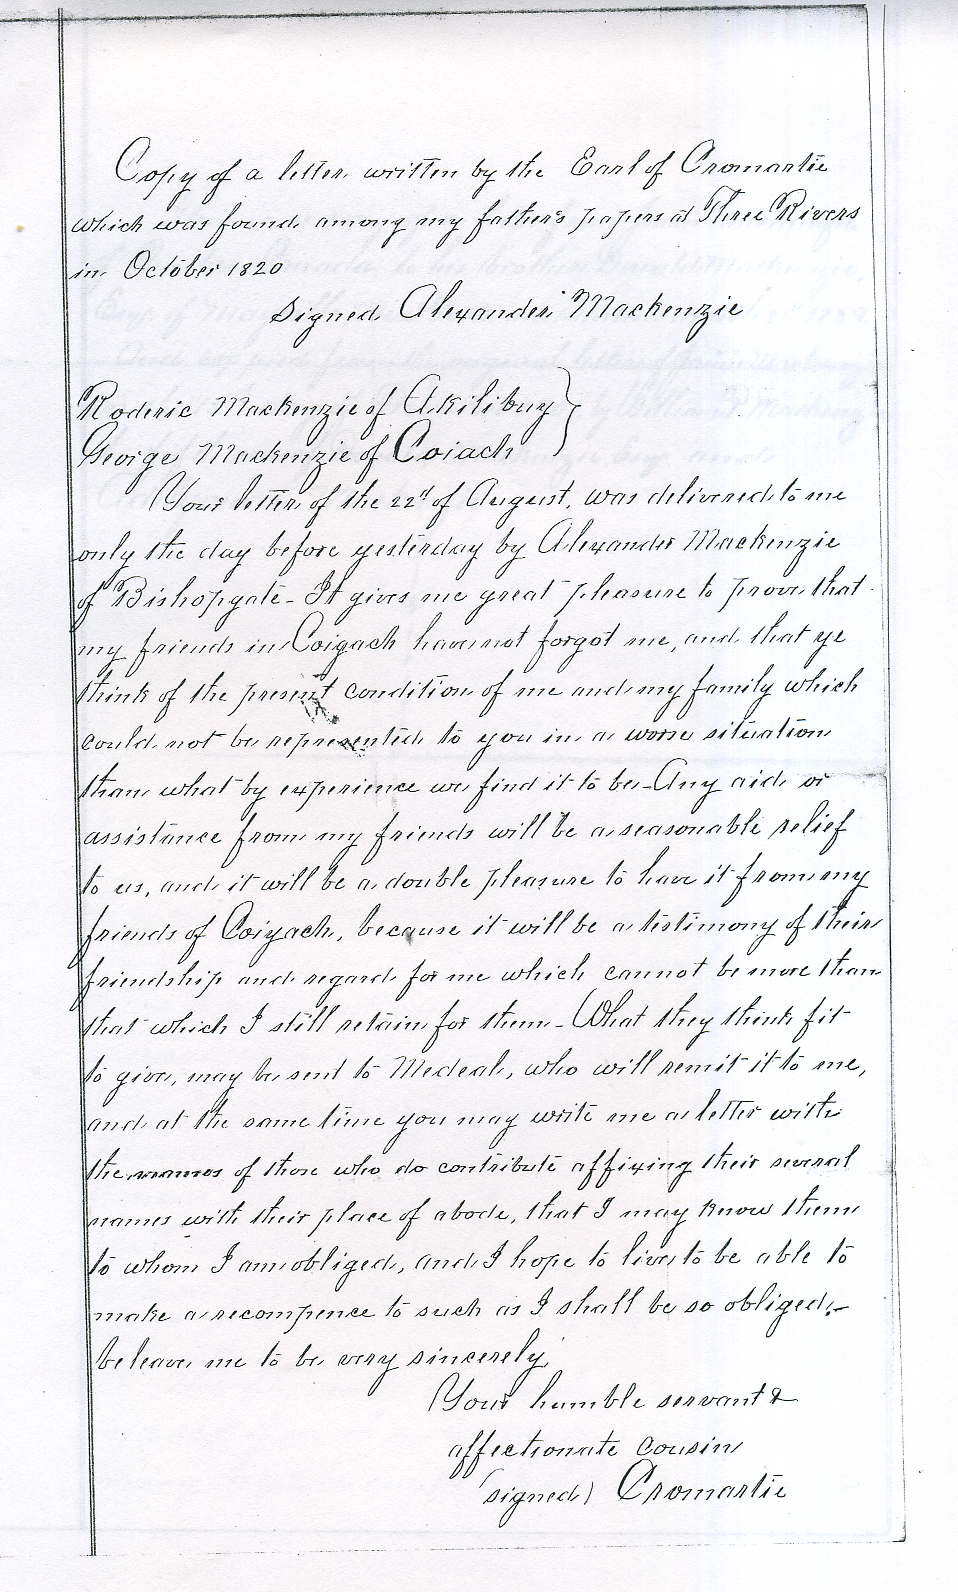 Copy of a letter written by the Earl of Cromartie
which was found among my father's papers at Three Rivers
in October 1820
Signed Alexander Mackenzie
Roderic Mackenzie of Akilibuy
George Mackenzie of Coiach
Your letter of the 22d of August, was delivered to me
only the day before yesterday by Alexander Mackenzie
of Bishopgate - It gives me great pleasure to prove that
my friends in Coigach have not forgot me, and that ye
think of the present condition of me and my family which
could not be represented to you in a worse situation
than what by experience we find it to be - Any aid or
assistance from my friends will be a seasonable relief
to us, and it will be a double pleasure to have it from my
friends of Coigach, because it will be a testimony of their
friendship and regard for me which cannot be more than
that which I still retain for them - What they think fit
to give, may be sent to Medeah, who will remit it to me,
and at the same time you may write me a letter with
the names of those who do contribute affixing their several
names with their place of abode, that I may know them
to whom I am obliged, and I hope to live to be able to
make a recompence to such as I shall be so obliged. -
beleave me to be very sincerely,
Your humble servant &
affectionate cousin
(signed) Cromartie